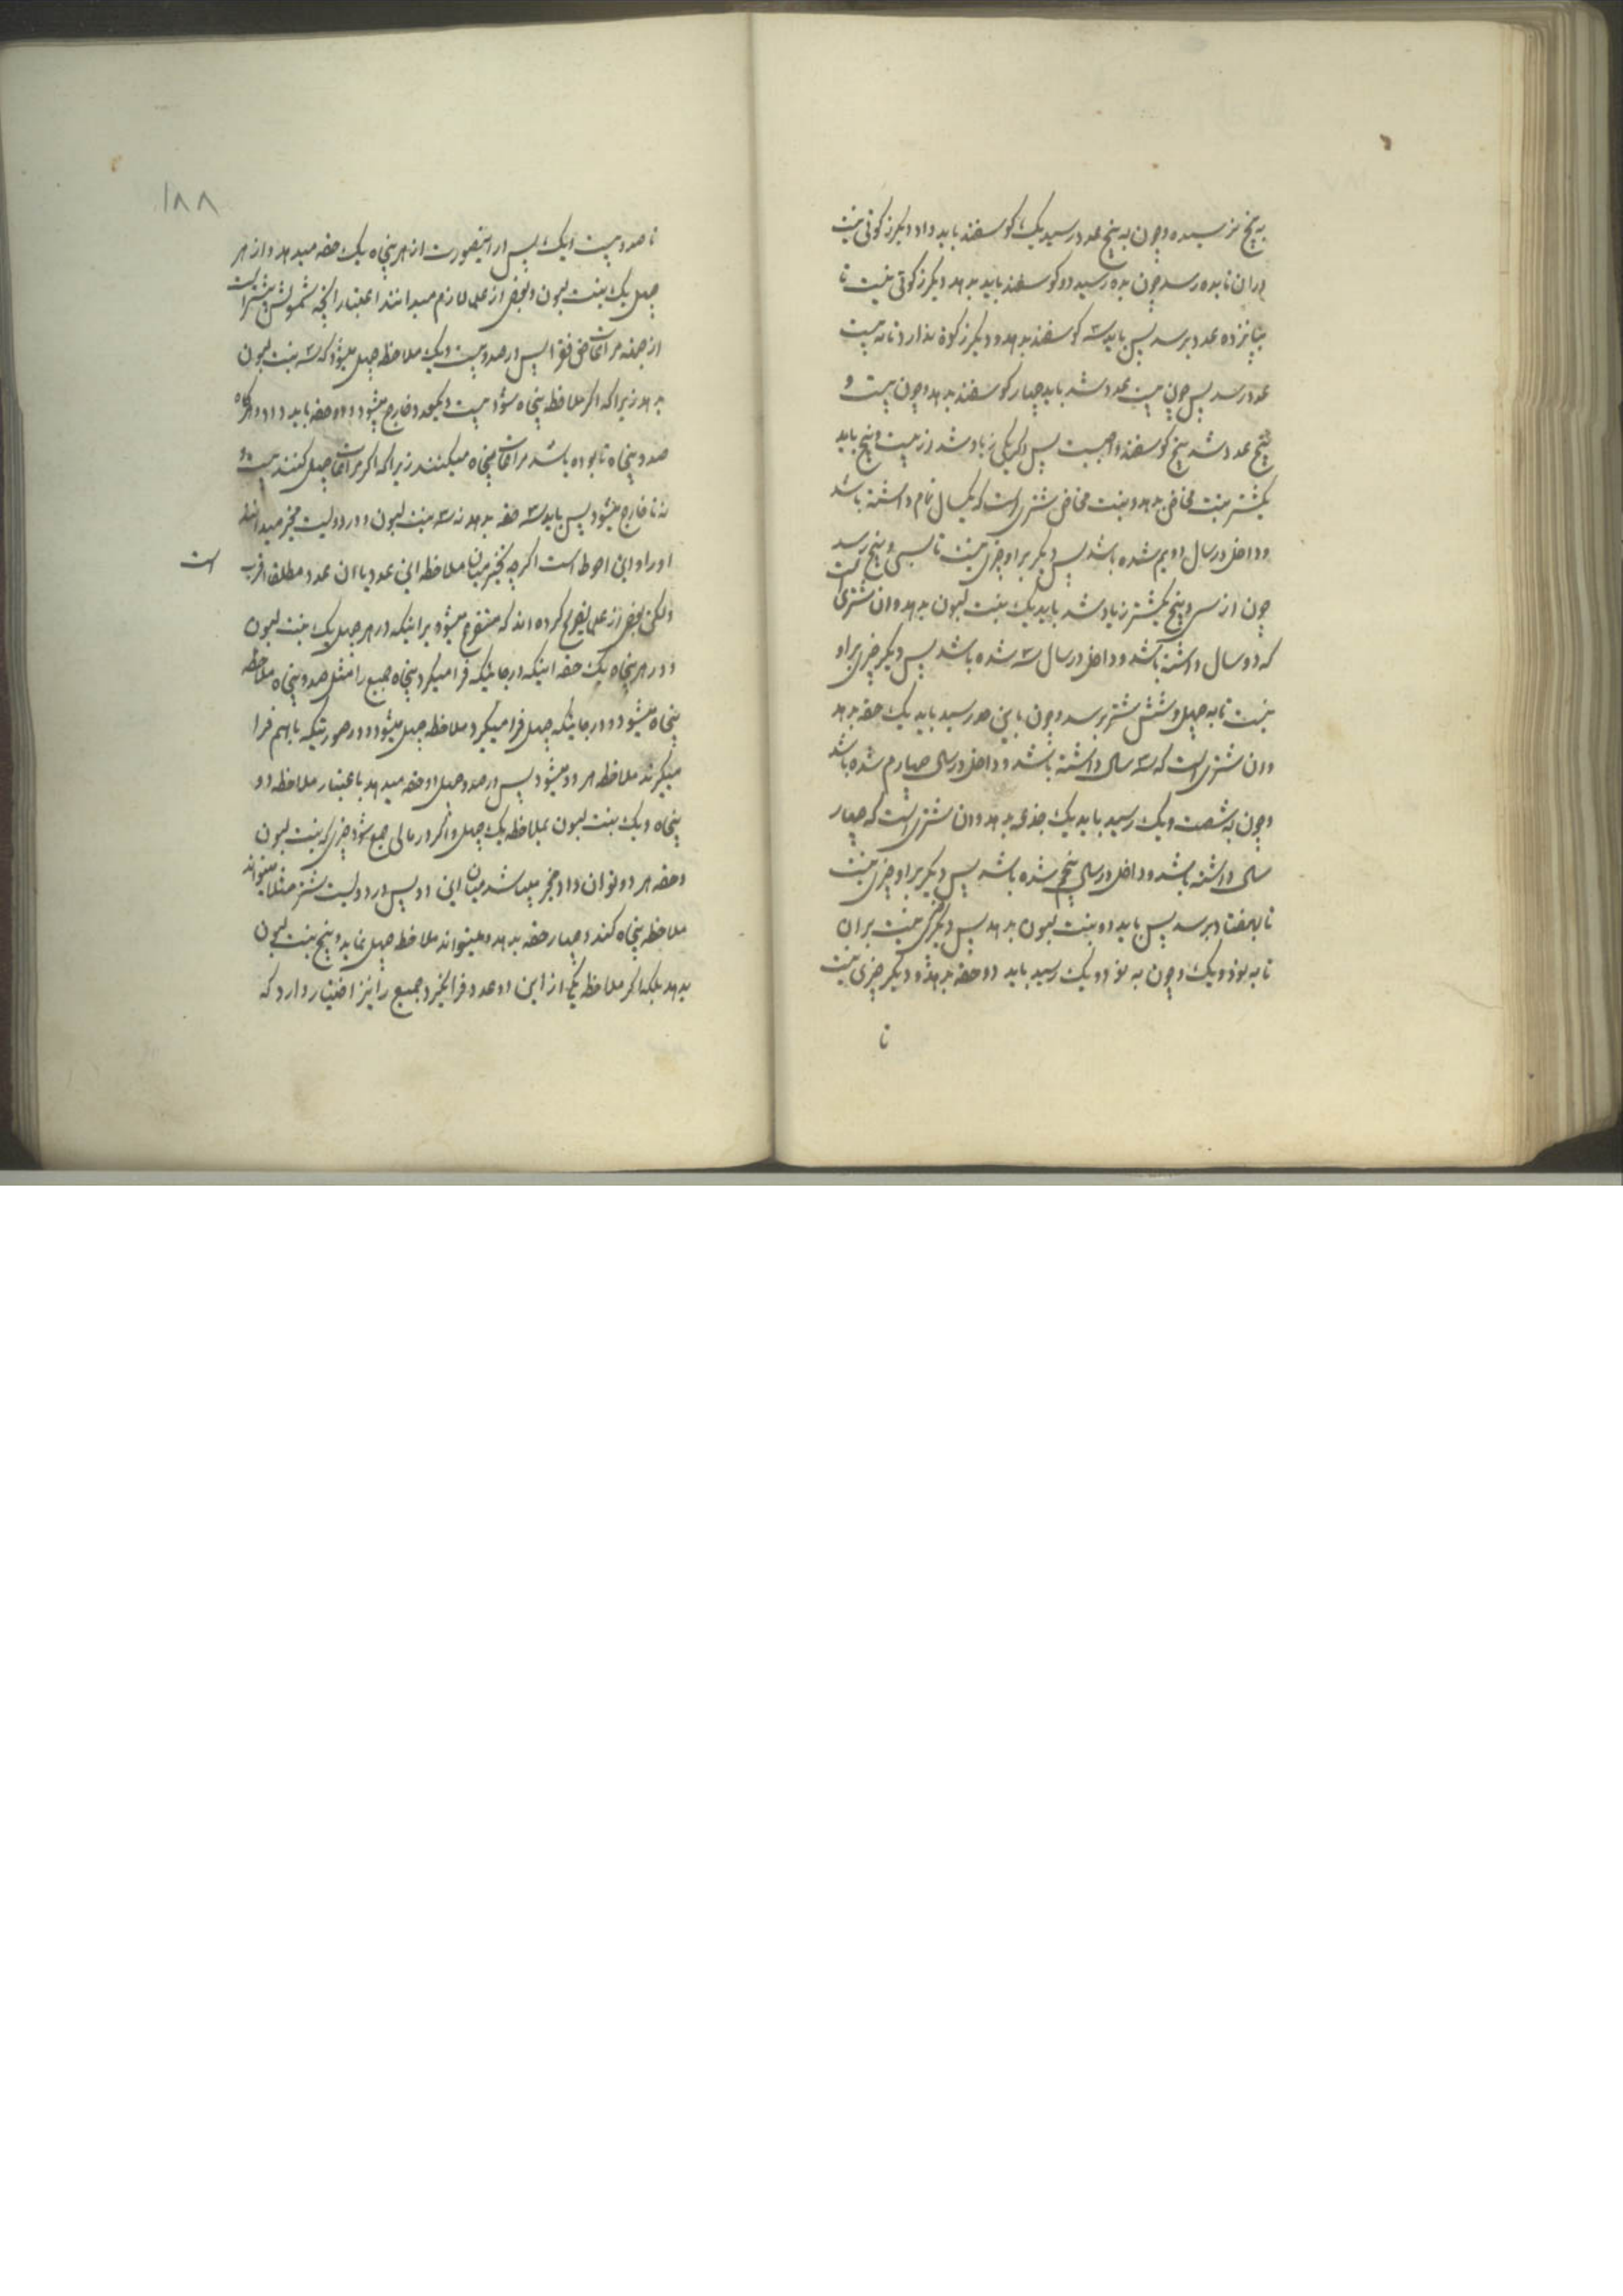 به پنج نرسیده و چون به پنج عدد رسید یک کوسفند باید داد و دیکر زکوتی نیست
دران تا بده رسد چون بده رسید دو کوسفند باید بدهد و دیکر زکوتی نیست تا
بپانزده عدد برسد پس باید سه کوسفند بدهد و دیکر زکوة ندارد تا به بیست
عدد رسد پس چون بیست عدد شد باید چهار کوسفند بدهد و چون بیست و
پنج عدد شد پنج کوسفند واجبست پس اکر یکی زیاد شد از بیست و پنج باید
یکشتر بنت مخاض بدهد و بنت مخاض شتری است که یکسال تمام داشته باشد
و داخل در سال دویم شده باشد پس دیکر براو چیزی نیست تا بسی و پنج رسد
چون از سی و پنج یکشتر زیاد شد باید یک بنت لبون بدهد و ان شتری است
که دو سال داشته باشد و داخل در سال سه شده باشد پس دیکر چیزی براو
نیست تا به چهل و شش شتر برسد و چون باین حد رسید باید یک حقه بدهد
و ان شتری است که سه سال داشته باشد و داخل در سال چهارم شده باشد
و چون به شصت و یک رسید باید یک جذعه بدهد و ان شتری است که چهار
سال داشته باشد و داخل در سال پنجم شده باشد پس دیکر براو چیزی نیست
تا بهفتاد برسد پس باید دو بنت لبون بدهد پس دیکر چیزی نیست بران
تا به نود و یک و چون به نود و یک رسید باید دو حقه بدهد و دیکر چیزی نیست
تا
۱۸۸
تا صد و بیست و یک پس در اینصورت از هر پنجاه یک حقه میدهد و از هر
چهل یک بنت لبون و بعضی از علما لازم میدانند اعتبار انچه شمولش بیشتر است
از جهة مراعات فقرا پس در صد و بیست و یک ملاحظه چهل میشود که سه بنت لبون
بدهد زیرا که اکر ملاحظه پنجاه شود بیست و یکعدد خارج میشود و دو حقه باید داد و هرکاه
صد و پنجاه تا بوده باشد مراعات پنجاه میکنند زیرا که اکر مراعات چهل کنند بیست و
نه تا خارج میشود پس باید سه حقه بدهد نه سه بنت لبون و در دویست مخیر میدانند
او را و این احوط است اکرچه تخییر میان ملاحظه این عدد یا ان عدد مطلقا اقرب است
ولکن بعضی از علما تصریح کرده اند که متفرع میشود براینکه در هر چهل یک بنت لبون
و در هر پنجاه یک حقه اینکه در جائیکه فرا میکیرد پنجاه جمیع را مثل صد و پنجاه ملاحظه
پنجاه میشود و در جائیکه چهل فرا میکیرد ملاحظه چهل میشود و در صورتیکه باهم فرا
میکیرند ملاحظه هر دو میشود پس در صد و چهل دو حقه میدهد باعتبار ملاحظه دو
پنجاه و یک بنت لبون بملاحظه یک چهل و اکر در مالی جمع شود چیزی که بنت لبون
و حقه هر دو توان داد مخیر میباشد میان این دو پس در دویست شتر مثلا میتواند
ملاحظه پنجاه کند و چهار حقه بدهد و میتواند ملاحظه چهل نماید و پنج بنت لبون
بدهد بلکه اکر ملاحظه یکی از این دو عدد فرا نکیرد جمیع را نیز اختیار دارد که